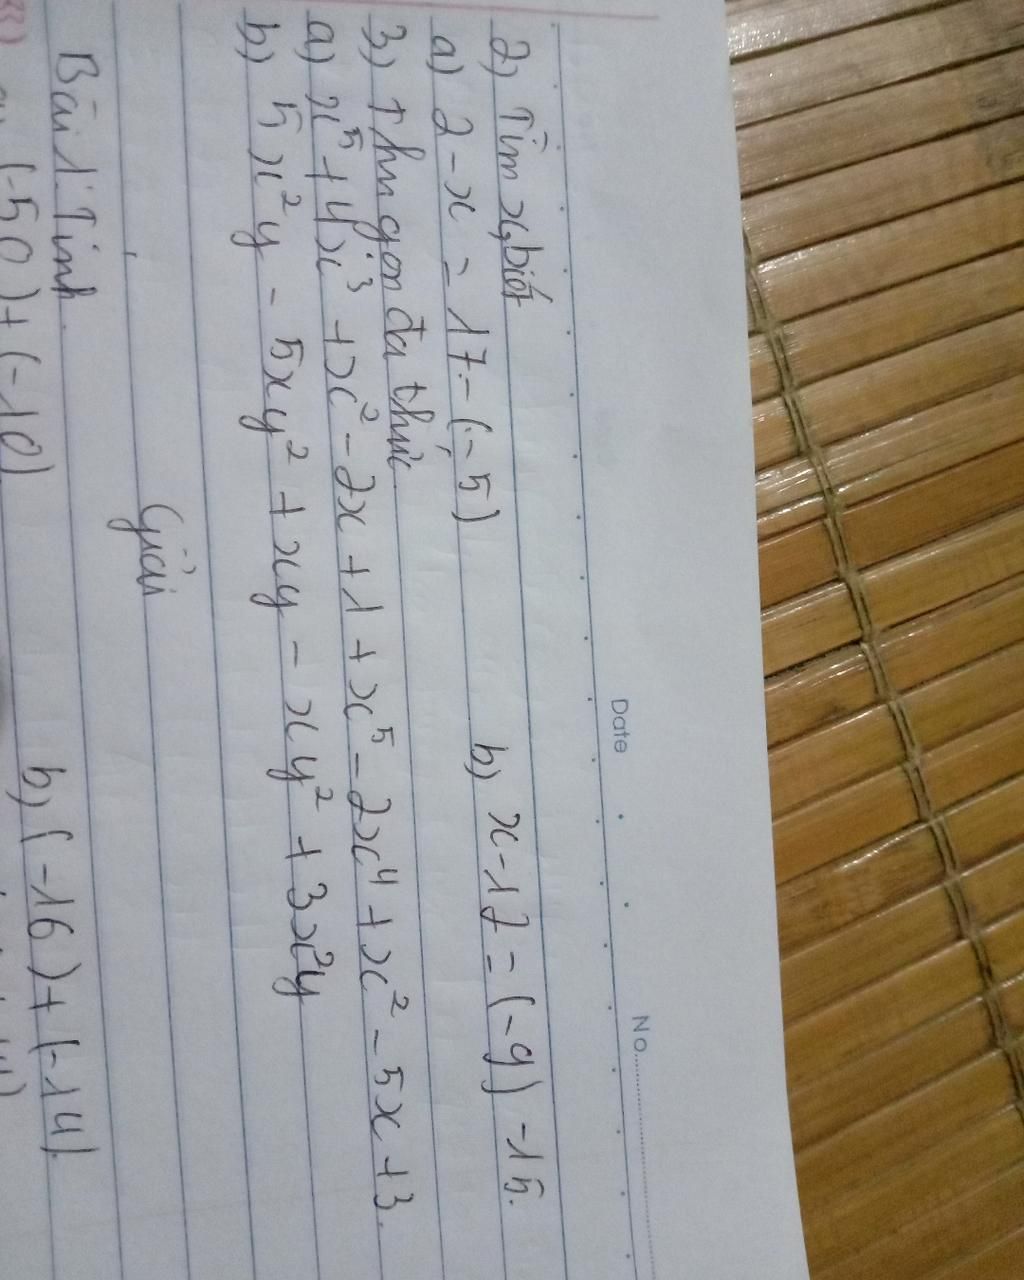 Date No.
2) Tìm x, biết
a) 2 - x = 17 - (-5) b) x - 17 = (-9) - 15.
3) Thu gọn đa thức
a) x⁵ + 4x³ + x² - 2x + 1 + x⁵ - 2x⁴ + x² - 5x + 3.
b) 5x²y - 5xy² + xy - xy² + 3x²y
Giải
Bài 1: Tính
(-50) + (-10) b) (-16) + (-14)